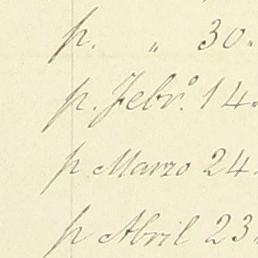 p. " 30.
p. Febr.º 14.
p Marzo 24.
p Abril 23.